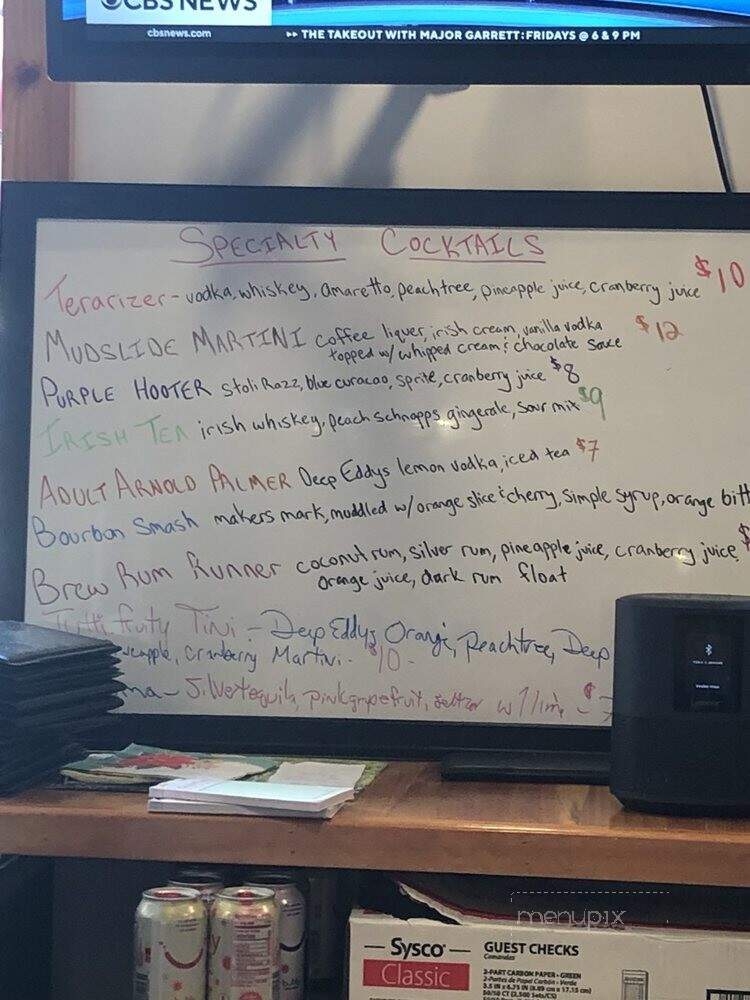 CBS NEWS
cbsnews.com
▸▸ THE TAKEOUT WITH MAJOR GARRETT: FRIDAYS @ 6 & 9 PM
SPECIALTY COCKTAILS
Terarizer - vodka, whiskey, amaretto, peachtree, pineapple juice, cranberry juice $10
MUDSLIDE MARTINI coffee liquer, irish cream, vanilla vodka $12
topped w/ whipped cream & chocolate sauce
PURPLE HOOTER Stoli Razz, blue curacao, sprite, cranberry juice $8
IRISH TEA irish whiskey, peach schnapps gingerale, sour mix $9
ADULT ARNOLD PALMER Deep Eddys lemon vodka, iced tea $7
Bourbon Smash makers mark, muddled w/ orange slice & cherry, simple syrup, orange bitt
Brew Rum Runner coconut rum, silver rum, pineapple juice, cranberry juice $
orange juice, dark rum float
Tutti fruty Tini - Deep Eddys Orange, Peachtree, Deep
neapple, Cranberry Martini - $10 -
ma - Silver tequila, pink grapefruit, seltzer w/ lime - $7
menupix
Sysco
Classic
GUEST CHECKS
Comandas
2-PART CARBON PAPER • GREEN
2-Partes de Papel Carbón • Verde
3.5 IN x 6.75 IN (8.89 cm x 17.15 cm)
50/50 CT (2,500 Sets/CS)